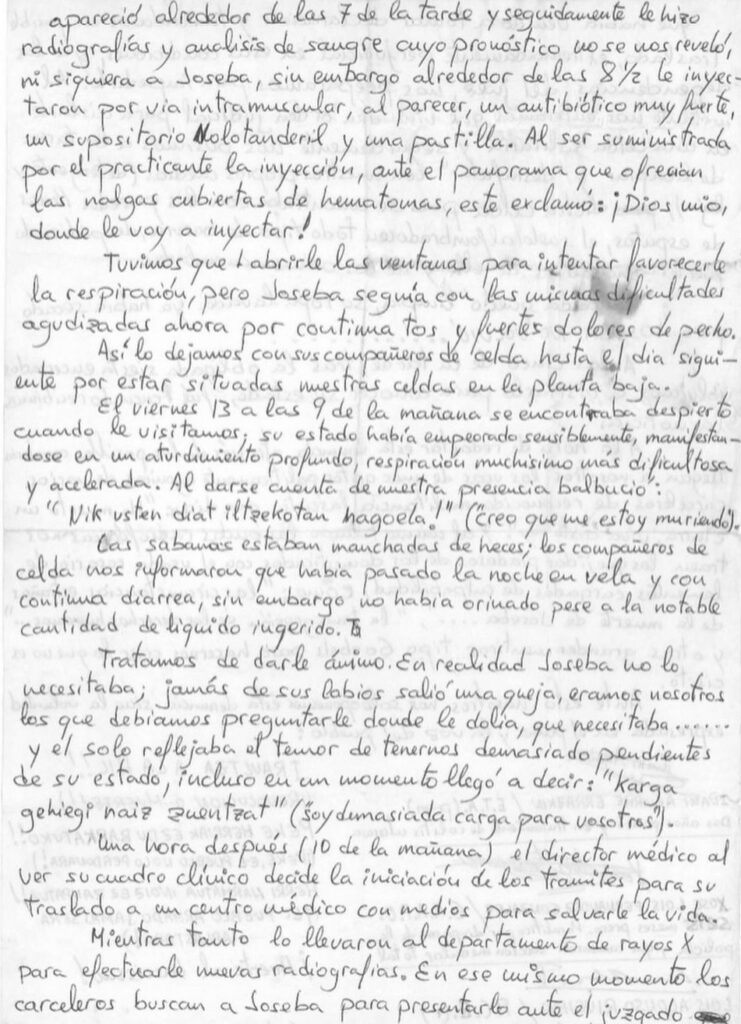 apareció alrededor de las 7 de la tarde y seguidamente le hizo
radiografías y analisis de sangre cuyo pronóstico no se nos reveló,
ni siquiera a Joseba, sin embargo alrededor de las 8½ le inyec-
taron por via intramuscular, al parecer, un antibiótico muy fuerte,
un supositorio Nolotanderil y una pastilla. Al ser suministrada
por el practicante la inyección, ante el panorama que ofrecian
las nalgas cubiertas de hematomas, este exclamó: ¡Dios mio,
donde le voy a inyectar!
Tuvimos que habrirle las ventanas para intentar favorecerle
la respiración, pero Joseba seguía con las mismas dificultades
agudizadas ahora por continua tos y fuertes dolores de pecho.
Así lo dejamos con sus compañeros de celda hasta el dia sigui-
ente por estar situadas nuestras celdas en la planta baja.
El viernes 13 a las 9 de la mañana se encontraba despierto
cuando le visitamos; su estado había empeorado sensiblemente, manifestan-
dose en un aturdimiento profundo, respiración muchisimo más dificultosa
y acelerada. Al darse cuenta de nuestra presencia balbució:
"Nik usten diat iltzekotan nagoela." ("Creo que me estoy muriendo").
Las sabanas estaban manchadas de heces; los compañeros de
celda nos informaron que había pasado la noche en vela y con
continua diarrea, sin embargo no había orinado pese a la notable
cantidad de liquido ingerido.
Tratamos de darle ánimo. En realidad Joseba no lo
necesitaba; jamás de sus labios salió una queja, eramos nosotros
los que debiamos preguntarle donde le dolia, que necesitaba......
y el solo reflejaba el temor de tenernos demasiado pendientes
de su estado, incluso en un momento llegó a decir: "Karga
gehiegi naiz zuentzat" ("Soy dumasiada carga para vosotros").
Una hora después (10 de la mañana) el director médico al
ver su cuadro clínico decide la iniciación de los tramites para su
traslado a un centro médico con medios para salvarle la vida.
Mientras tanto lo llevaron al departamento de rayos X
para efectuarle nuevas radiografías. En ese mismo momento los
carceleros buscan a Joseba para presentarlo ante el juzgado